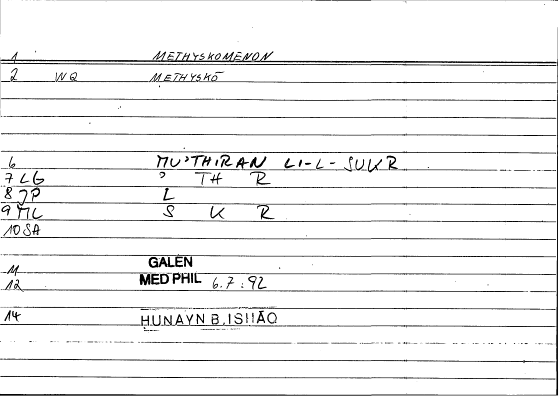 1 METHYSKOMENON
2 WQ METHYSKŌ
6 MU'THIRAN LI-L-SUKR
7 LG ' TH R
8 JP L
9 ML S K R
10 SA
11 GALEN
12 MED PHIL 6.7:92
14 HUNAYN B. ISHĀQ